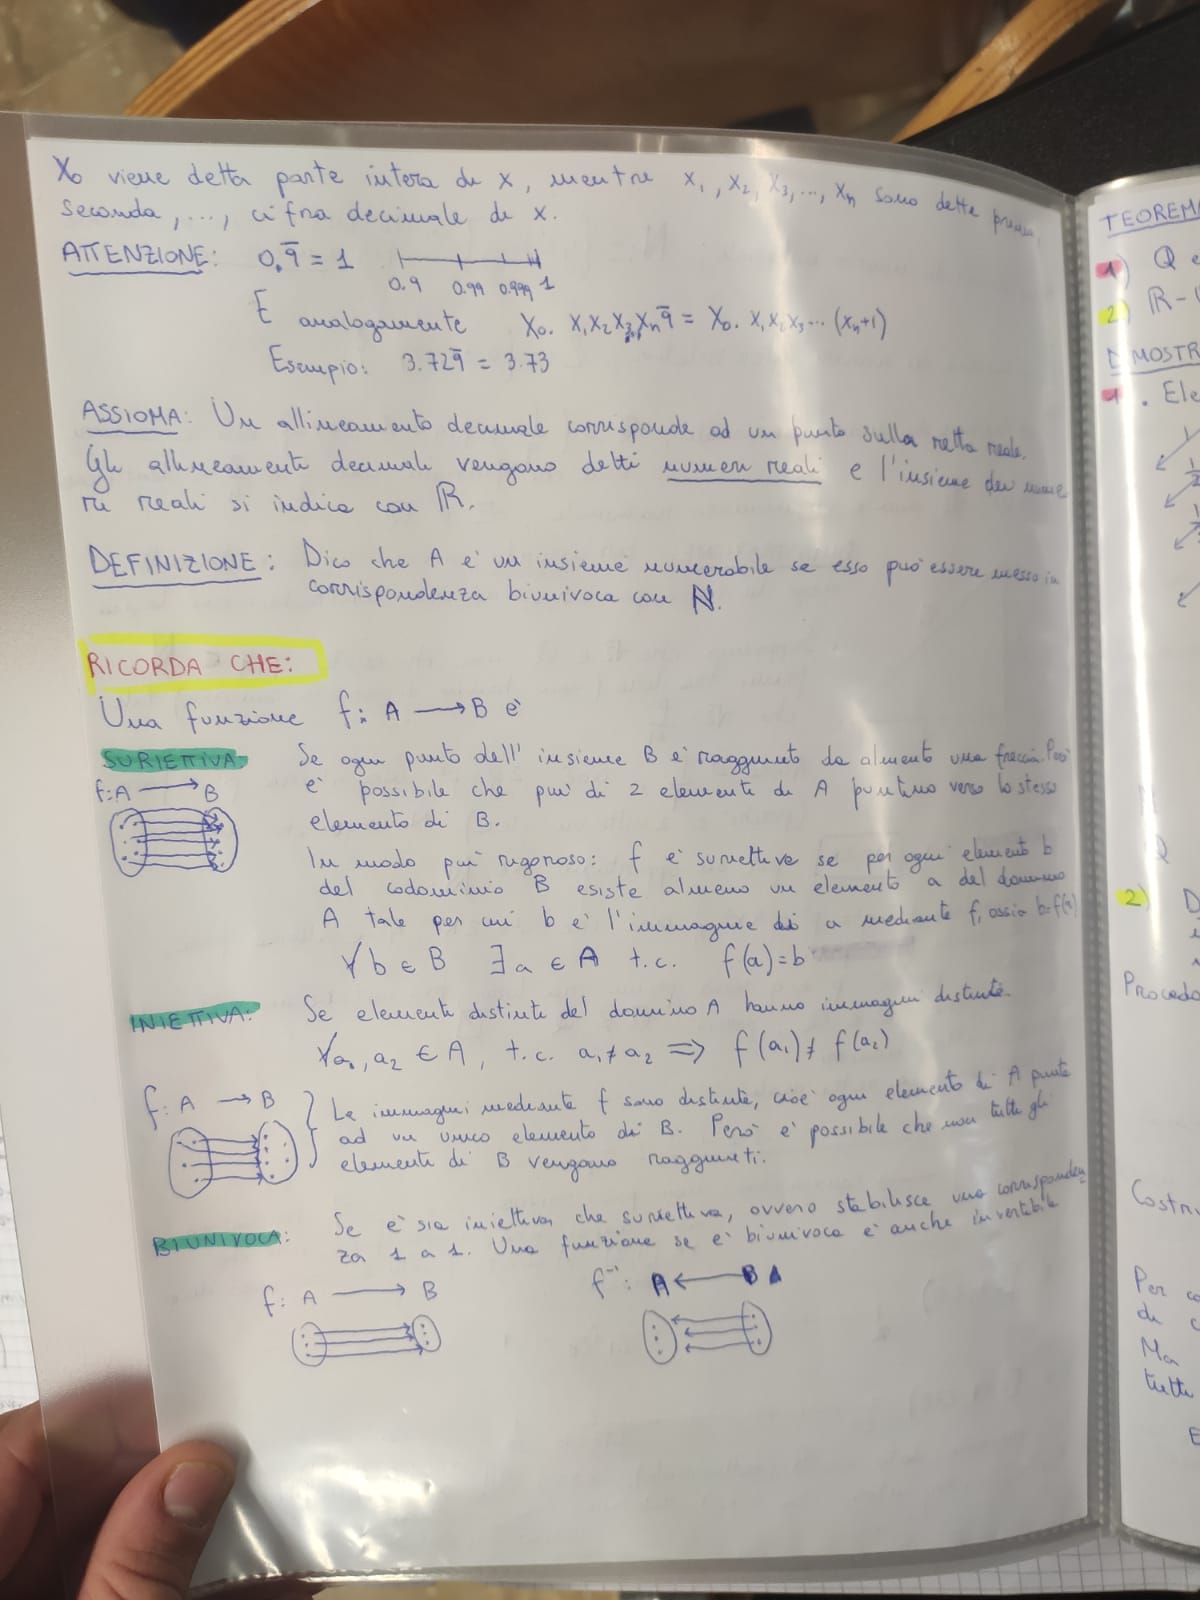 X₀ viene detta parte intera di x, mentre x₁, x₂, x₃, ..., xₙ sono dette prima,
seconda, ..., cifra decimale di x.
ATTENZIONE: 0.9̅ = 1
0.9 0.99 0.999 1
E analogamente X₀. X₁X₂X₃...Xₙ9̅ = X₀. X₁X₂X₃... (Xₙ+1)
Esempio: 3.729̅ = 3.73
ASSIOMA: Un allineamento decimale corrisponde ad un punto sulla retta reale.
Gli allineamenti decimali vengono detti numeri reali e l'insieme dei nume
ri reali si indica con ℝ.
DEFINIZIONE: Dico che A è un insieme numerabile se esso può essere messo in
corrispondenza biunivoca con ℕ.
RICORDA CHE:
Una funzione f: A → B è
SURIETTIVA: Se ogni punto dell'insieme B è raggiunto da almeno una freccia. Però
f: A → B
è possibile che più di 2 elementi di A puntino verso lo stesso
elemento di B.
In modo più rigoroso: f è suriettiva se per ogni elemento b
del codominio B esiste almeno un elemento a del dominio
A tale per cui b è l'immagine di a mediante f, ossia b=f(a)
∀ b ∈ B ∃ a ∈ A t.c. f(a)=b
INIETTIVA: Se elementi distinti del dominio A hanno immagini distinte.
∀a₁, a₂ ∈ A, t.c. a₁≠a₂ ⇒ f(a₁) ≠ f(a₂)
f: A → B
Le immagini mediante f sono distinte, cioè ogni elemento di A punta
ad un unico elemento di B. Però è possibile che non tutti gli
elementi di B vengano raggiunti.
BIUNIVOCA: Se è sia iniettiva che suriettiva, ovvero stabilisce una corrisponden
za 1 a 1. Una funzione se è biunivoca è anche invertibile
f: A → B f⁻¹: A ← B
TEOREMA
1) Q
2) ℝ-
DIMOSTR
1. Ele
Q
2)
Procedo
Costru
Per
di
Ma
tutti